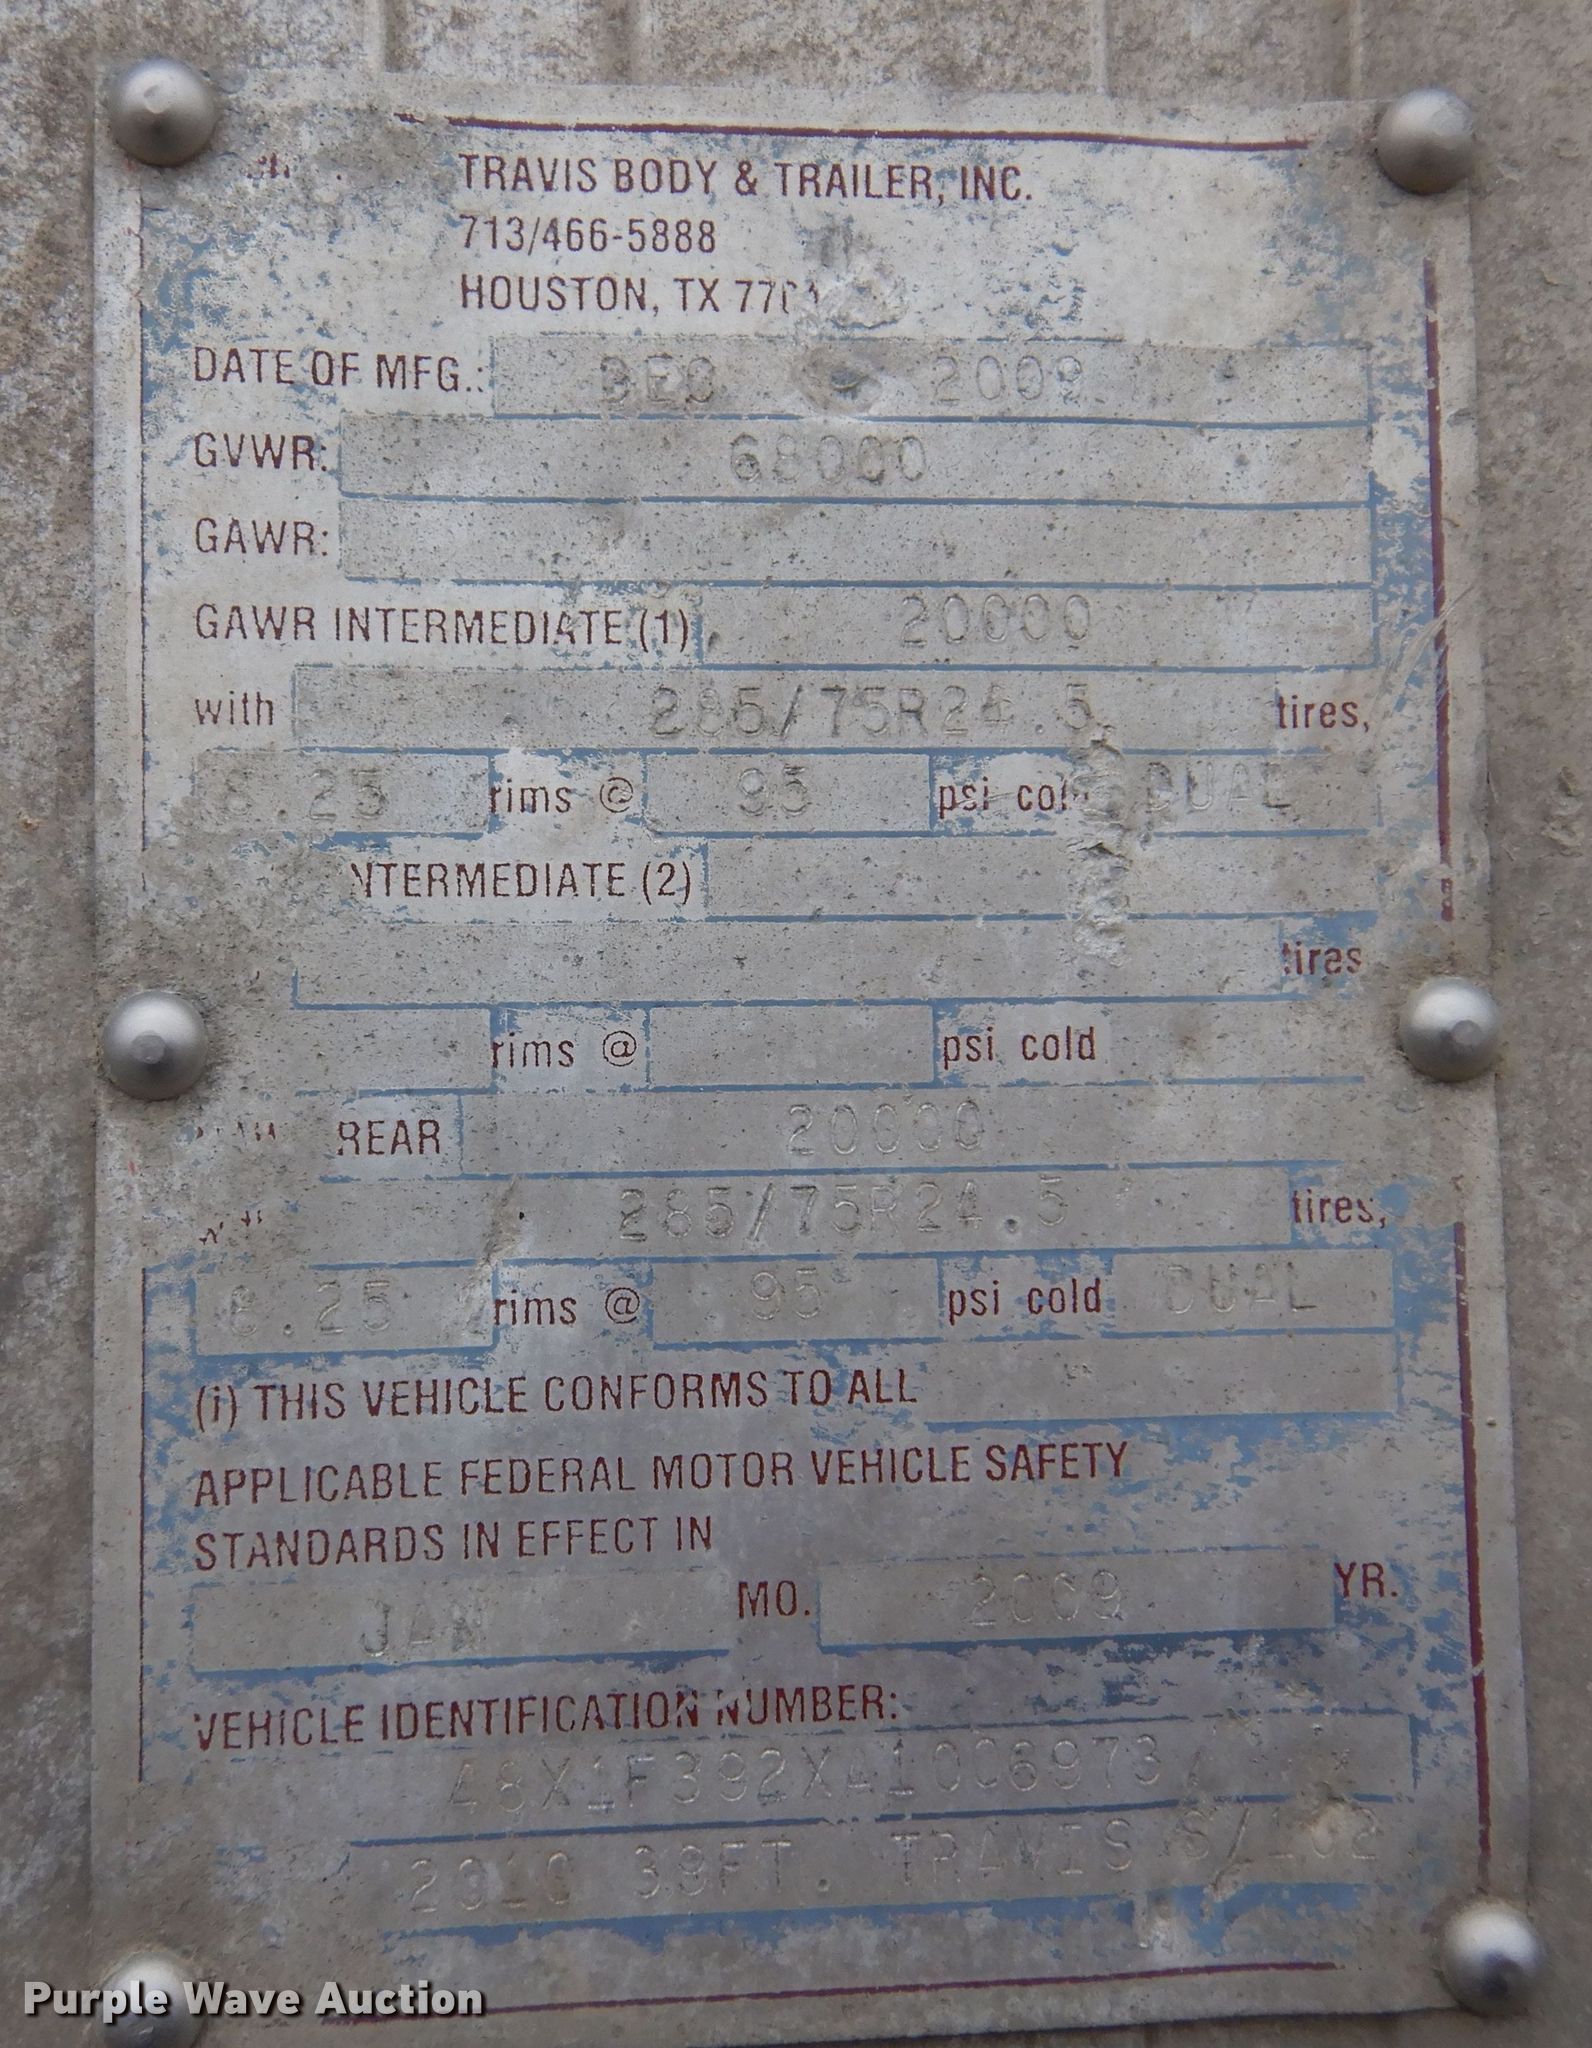 TRAVIS BODY & TRAILER, INC.
713/466-5888
HOUSTON, TX
DATE OF MFG.: DEC 2009
GVWR: 68000
GAWR:
GAWR INTERMEDIATE (1) 20000
with 285/75R24.5 tires,
8.25 rims @ 95 psi cold DUAL
INTERMEDIATE (2)
tires
rims @ psi cold
REAR 20000
285/75R24.5 tires,
8.25 rims @ 95 psi cold DUAL
(i) THIS VEHICLE CONFORMS TO ALL
APPLICABLE FEDERAL MOTOR VEHICLE SAFETY
STANDARDS IN EFFECT IN
JAN MO. 2009 YR.
VEHICLE IDENTIFICATION NUMBER:
48X1F392XA1006973
2010 39FT. TRAVIS S/102
Purple Wave Auction